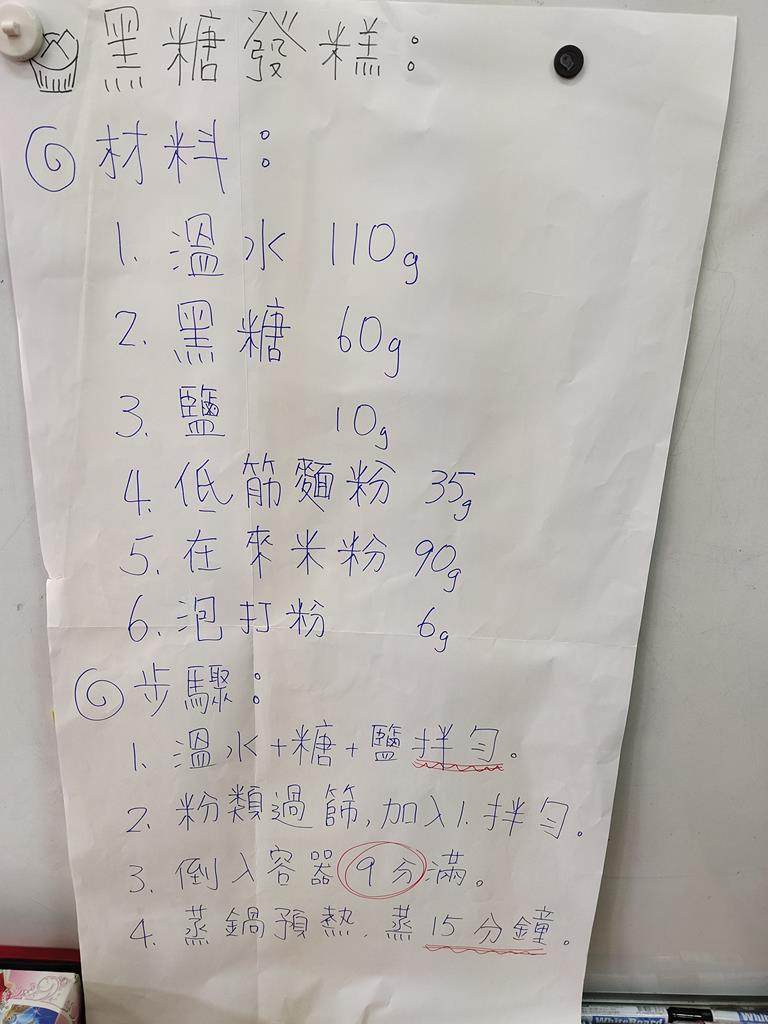 黑糖發糕：
材料：
1. 溫水 110g
2. 黑糖 60g
3. 鹽 10g
4. 低筋麵粉 35g
5. 在來米粉 90g
6. 泡打粉 6g
步驟：
1. 溫水+糖+鹽拌勻。
2. 粉類過篩,加入1.拌勻。
3. 倒入容器9分滿。
4. 蒸鍋預熱.蒸15分鐘。
WhiteBoard